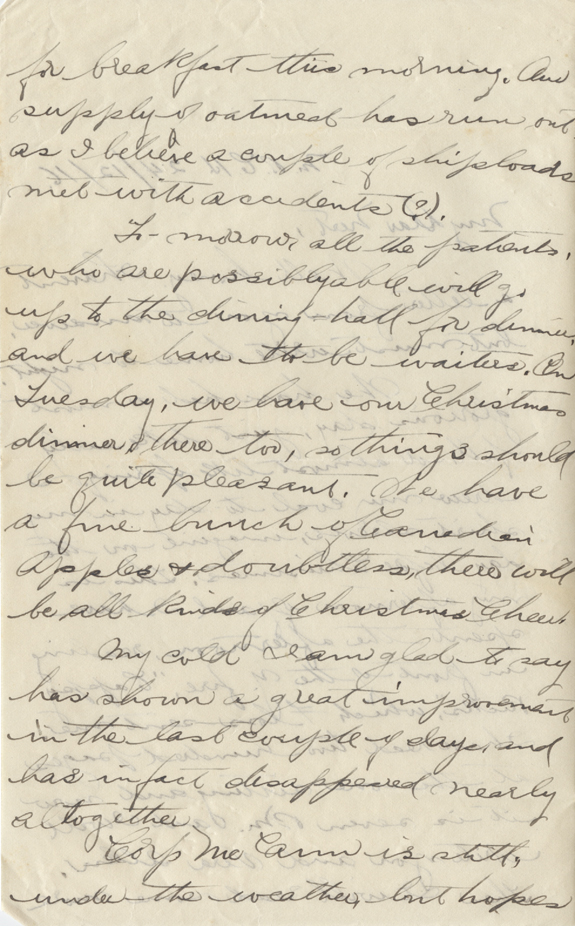 for breakfast this morning. Our
supply of oatmeal has run out
as I believe a couple of shiploads
met with accidents (?).
To-morrow, all the patients,
who are possibly able will go
up to the dining-hall for dinner,
and we have to be waiters. On
Tuesday, we have our Christmas
dinner there too, so things should
be quite pleasant. We have
a fine bunch of Canadian
Apples & doubtless, there will
be all kinds of Christmas Cheer.
My cold I am glad to say
has shown a great improvement
in the last couple of days, and
has in fact disappeared nearly
altogether
Corp McCann is still,
under the weather, but hopes